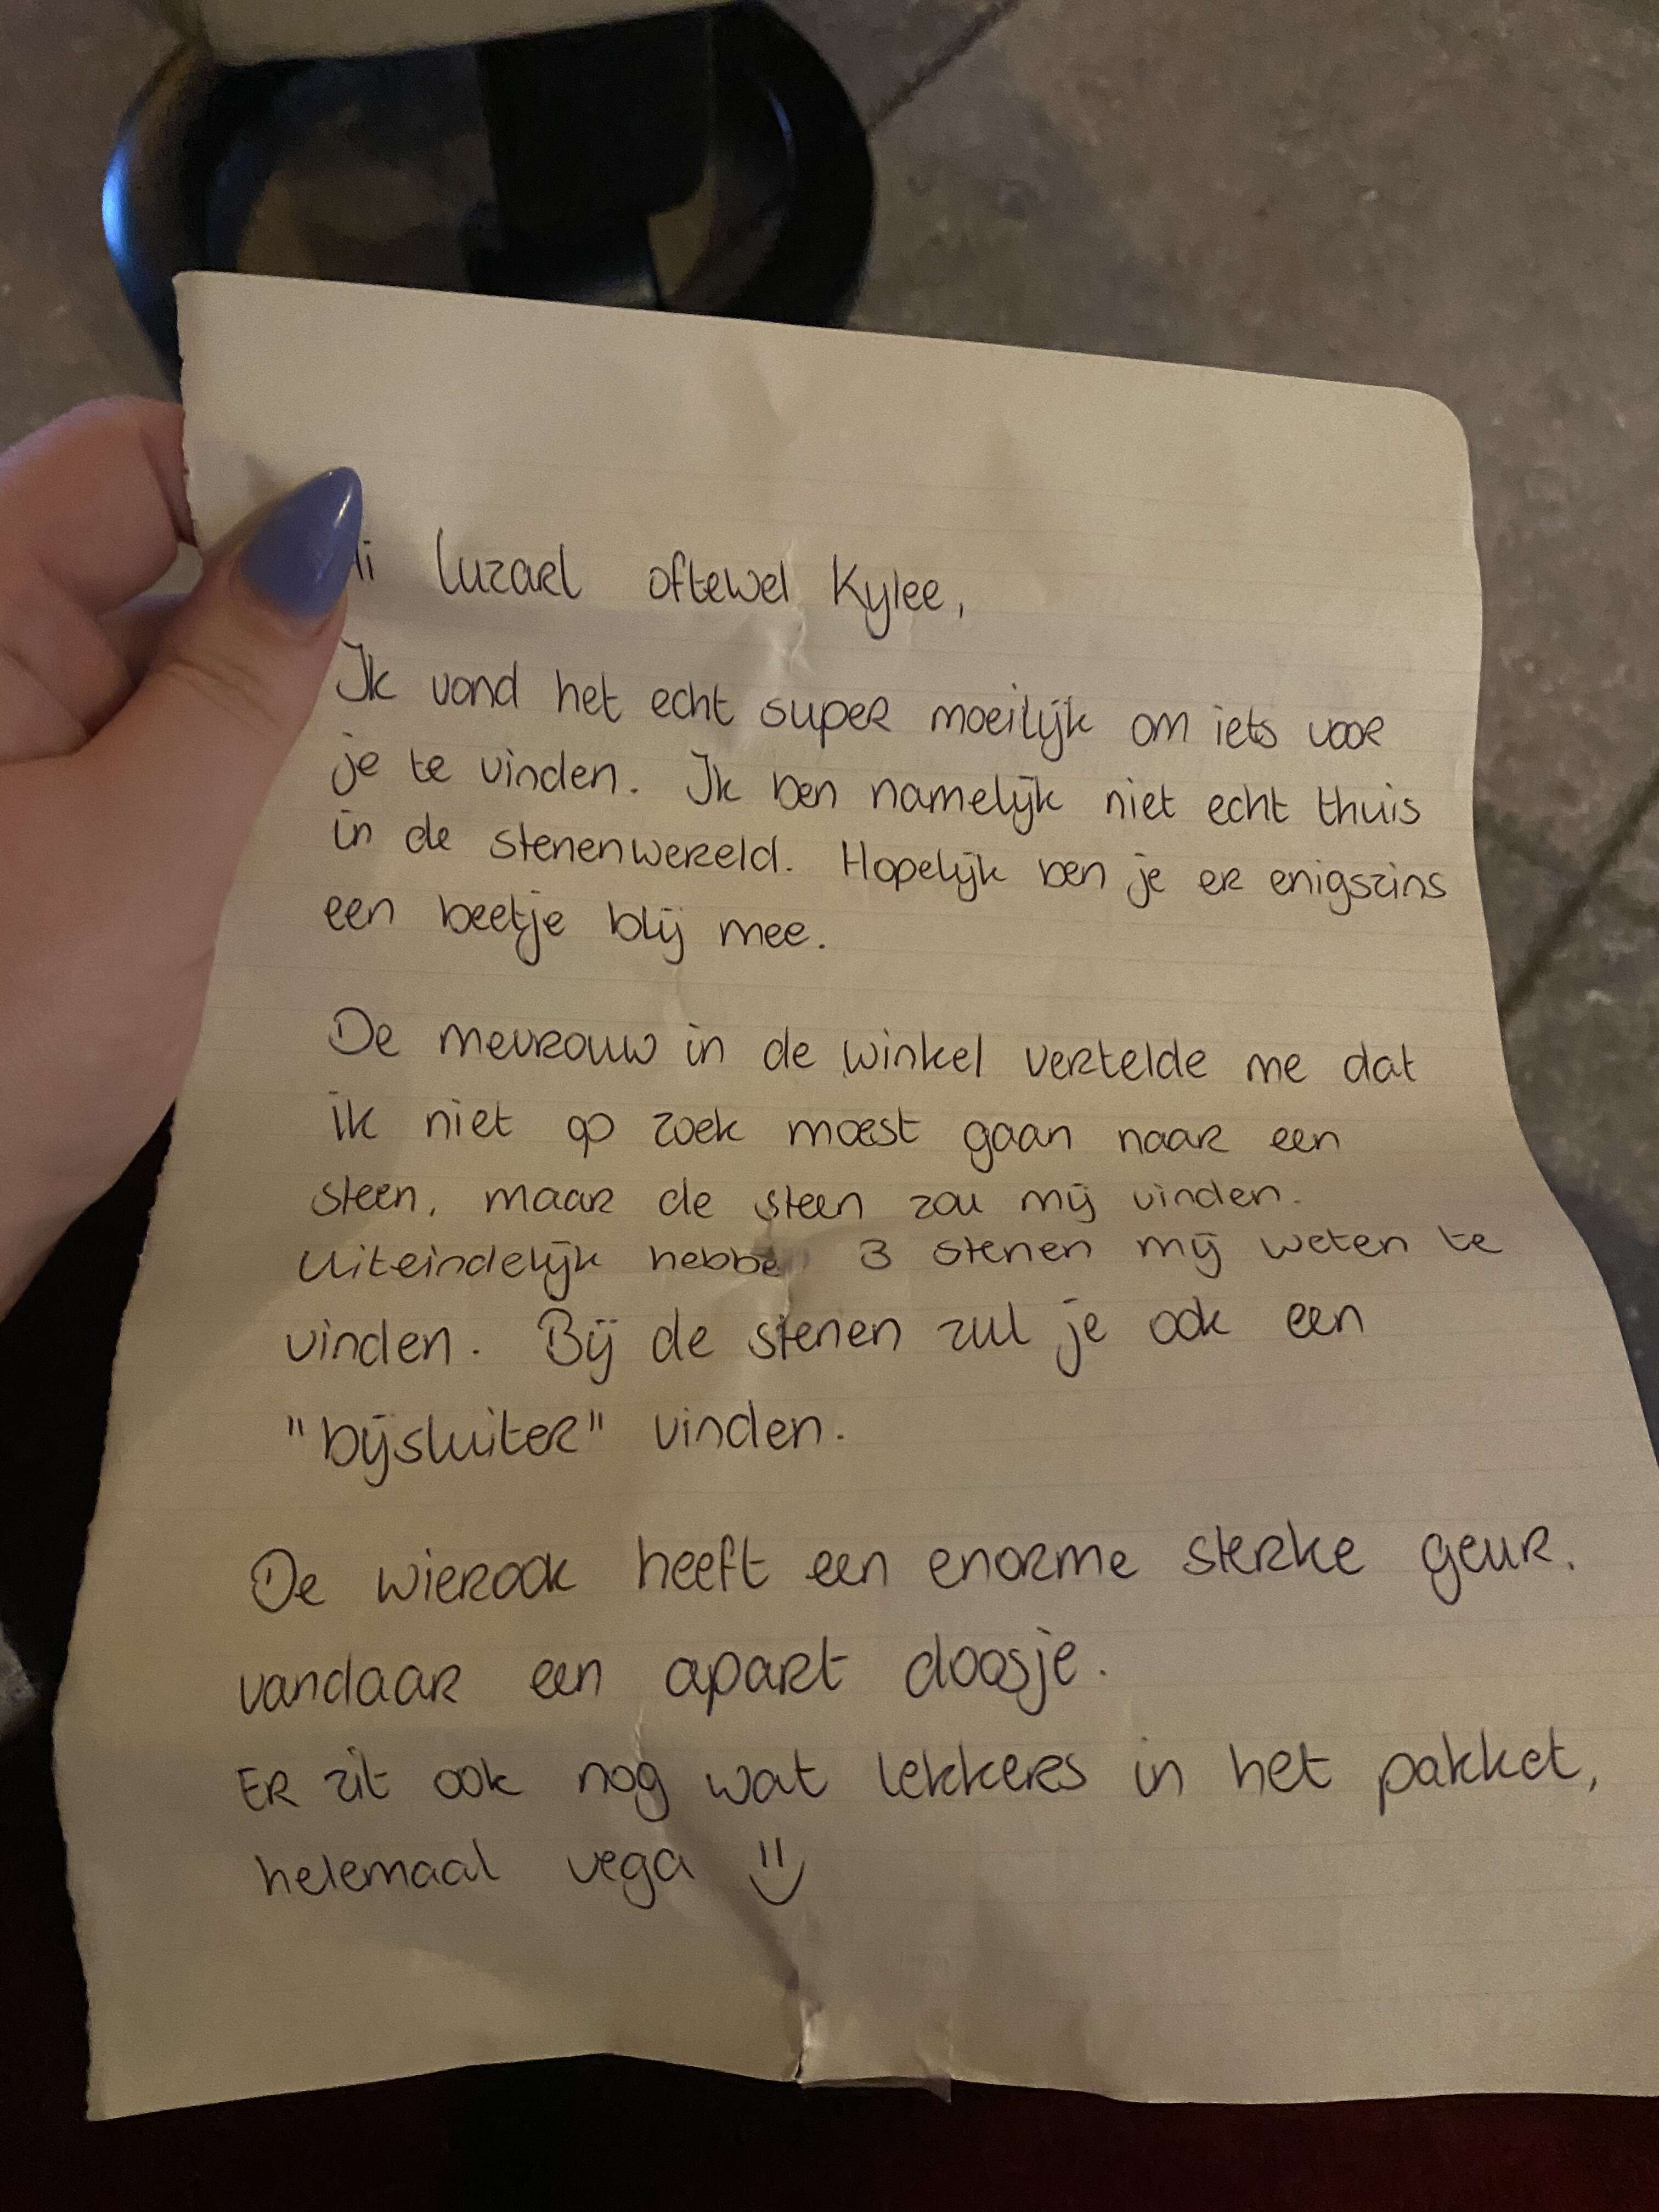 Hi Luzarl oftewel Kylee,
Ik vond het echt super moeilijk om iets voor
je te vinden. Ik ben namelijk niet echt thuis
in de stenenwereld. Hopelijk ben je er enigszins
een beetje blij mee.
De mevrouw in de winkel vertelde me dat
ik niet op zoek moest gaan naar een
steen, maar de steen zou mij vinden.
Uiteindelijk hebben 3 stenen mij weten te
vinden. Bij de stenen zul je ook een
"bijsluiter" vinden.
De wierook heeft een enorme sterke geur.
vandaar een apart doosje.
Er zit ook nog wat lekkers in het pakket,
helemaal vega :)